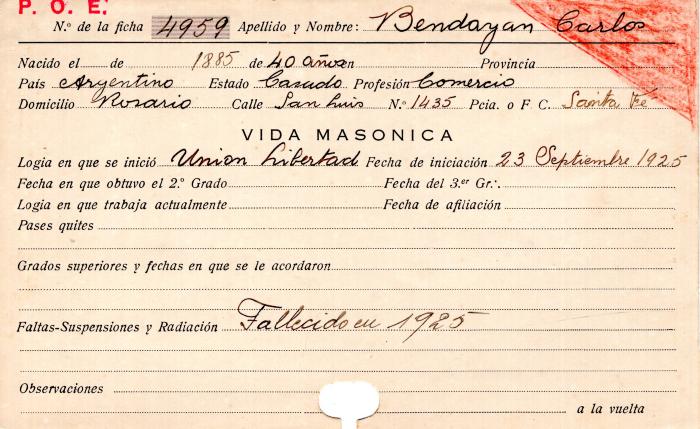 P. O. E.
N.º de la ficha 4959 Apellido y Nombre: Bendayan Carlos
Nacido el de 1885 de 40 años en Provincia
País Argentino Estado Casado Profesión Comercio
Domicilio Rosario Calle San Luis N.º 1435 Pcia. o F C. Santa Fé
VIDA MASONICA
Logia en que se inició Union Libertad Fecha de iniciación 23 Septiembre 1925
Fecha en que obtuvo el 2.º Grado Fecha del 3.er Gr∴
Logia en que trabaja actualmente Fecha de afiliación
Pases quites
Grados superiores y fechas en que se le acordaron
Faltas-Suspensiones y Radiación Fallecido en 1925
Observaciones
a la vuelta